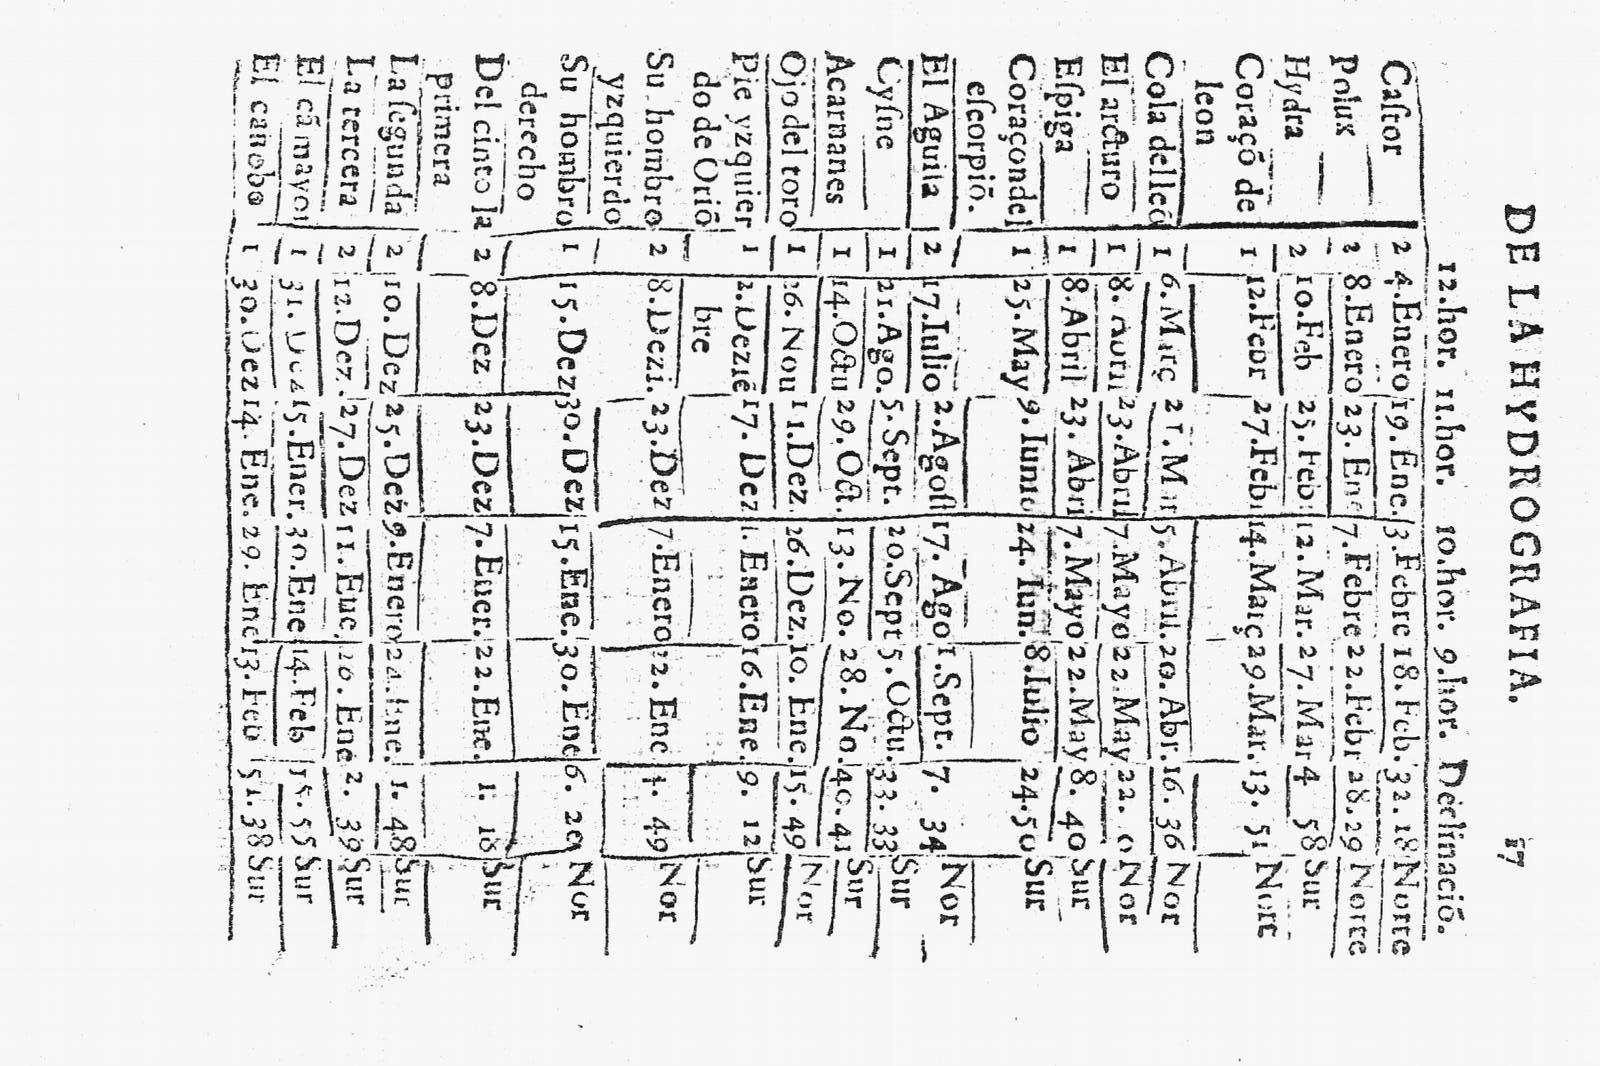 DE LA HYDROGRAFIA. 17
12.hor. 11.hor. 10.hor. 9.hor. Declinaciō.
Caſtor 2 4.Enero 19. Ene. 3.Febre 18. Feb. 32. 18 Norte
Polux 2 8.Enero 23. Ene 7.Febre 22.Febr 28.29 Norte
Hydra 2 10.Feb 25.Feb 12. Mar. 27. Mar 4 58 Sur
Coraçō de 1 12.Febr 27.Feb 14. Març 29.Mar. 13. 51 Nort
leon
Cola delleō 1 6.Març 21.M 5.Abril. 20. Abr. 16. 36 Nor
El arcturo 1 8. Abril 23.Abril 7.Mayo 22.May 22. 0 Nor
Eſpiga 1 8.Abril 23. Abri 7.Mayo 22.May 8. 40 Sur
Coraçondel 1 25.May 9.Iunio 24. Iun. 8.Iulio 24.50 Sur
eſcorpiō.
El Aguila 2 17.Iulio 2.Agoſt 17. Ago 1.Sept. 7. 34 Nor
Cyſne 1 21.Ago. 5.Sept. 20.Sept 5.Octu. 33. 33 Sur
Acarnanes 1 14.Octu 29. Oct. 13. No. 28. No. 40. 41 Sur
Ojo del toro 1 26. Nou 11.Dez. 26.Dez. 10. Ene. 15. 49 Nor
Pie yzquier 1 2.Deziē 17. Dez 1. Enero 16.Ene. 9. 12 Sur
do de Oriō bre
Su hombro 2 8.Dezi. 23.Dez 7.Enero 22. Ene 4. 49 Nor
yzquierdo
Su hombro 1 15.Dez. 30.Dez 15.Ene. 30. Ene 6. 20 Nor
derecho
Del cinto la 2 8.Dez 23.Dez 7.Ener. 22.Ene. 1. 18 Sur
primera
La ſegunda 2 10. Dez 25.Dez 9.Enero 24.Ene. 1. 48 Sur
La tercera 2 12.Dez. 27.Dez 11.Ene. 26. Ene 2. 39 Sur
El cā mayor 1 31. Dez 15.Ener. 30.Ene 14.Feb 15.55 Sur
El canobo 1 30.Dez 14. Ene. 29. Ene 13.Feb 51.38 Sur